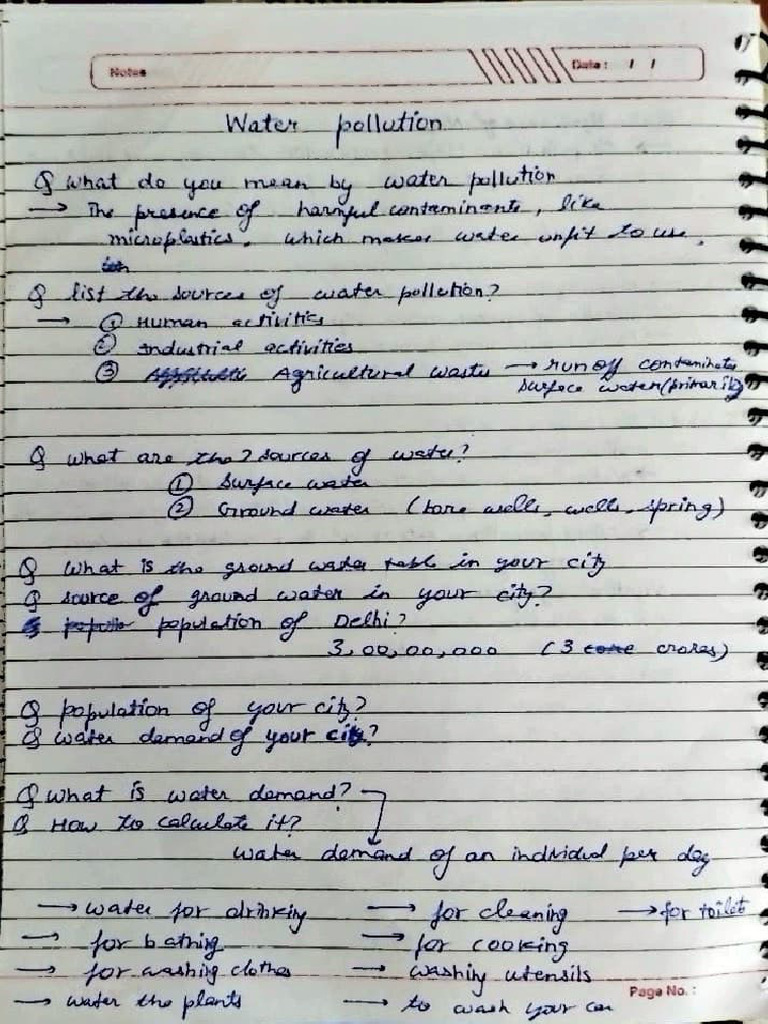 Notes
Date : / /
Water pollution
Q What do you mean by water pollution
→ The presence of harmful contaminents, like
microplastics, which makes water unfit to use.
Q list the sources of water pollution?
→ ① Human activities
② Industrial activities
③ Agricultural waste → run off contaminates
surface water (primarily)
Q what are the 2 sources of water?
① Surface water
② Ground water (bore wells, wells, spring)
Q What is the ground water table in your city
Q source of ground water in your city?
population of Delhi?
3,00,00,000 (3 crores)
Q population of your city?
Q water demand of your city?
Q What is water demand?
Q How to calculate it?
water demand of an individual per day
→ water for drinking → for cleaning → for toilet
→ for bathing → for cooking
→ for washing clothes → washing utensils
→ water the plants → to wash your car
Page No. :